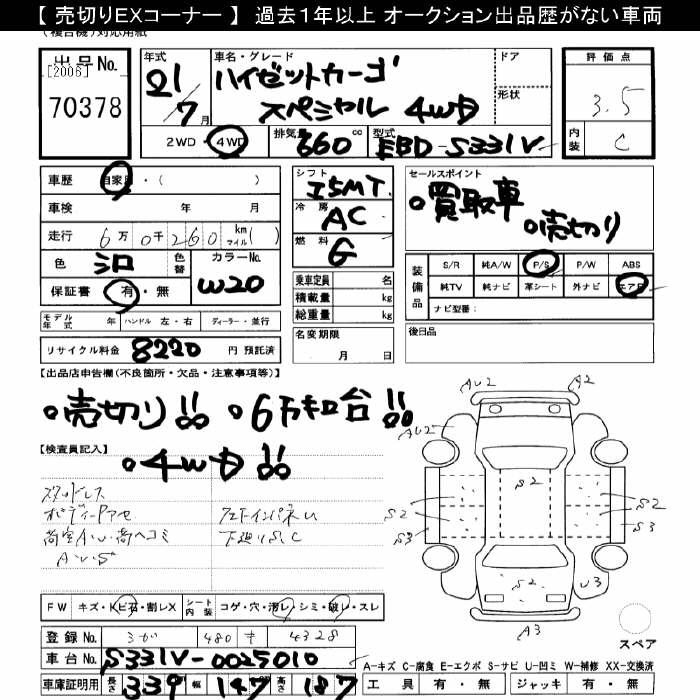 【 売切りEXコーナー 】 過去1年以上 オークション出品歴がない車両
(複合機)対応用紙
出品No.
[2006]
70378
年式
21/7月
車名・グレード
ハイゼットカーゴ
スペシャル 4WD
ドア
形状
評価点
3.5
内装 C
2WD・4WD
排気量 660 cc
型式 EBD-S331V
車歴 自家用・( )
車検 年 月
走行 6万0千260 km マイル( )
色 シロ 色替
カラーNo. W20
保証書 有・無
シフト I5MT
冷房 AC
燃料 G
セールスポイント
◦買取車
◦売切り
乗車定員 名
積載量 kg
総重量 kg
装備品
S/R 純A/W P/S P/W ABS
純TV 純ナビ 革シート 外ナビ エアB
ナビ型番:
モデル年式 年 ハンドル 左・右 ディーラー・並行
リサイクル料金 8220 円 預託済
名変期限
月 日
後日品
【出品店申告欄(不良箇所・欠品・注意事項等)】
◦売切り!! ◦6万キロ台!!
◦4WD!!
【検査員記入】
スタッドレス
ボディーアセ
荷室AU、荷ヘコミ
下廻りS、C
AU2
A2
AU2
S2
S2
S2
S2
S3
S3
S2
U3
A3
スペア
FW キズ・トビ石・割レX
シート内装 コゲ・穴・汚レ・シミ・破レ・スレ
登録No. 480 4328
車台No. S331V-0025010
車庫証明用 長さ 339 幅 147 高さ 187
A-キズ C-腐食 E-エクボ S-サビ U-凹ミ W-補修 XX-交換済
工具 有・無 ジャッキ 有・無